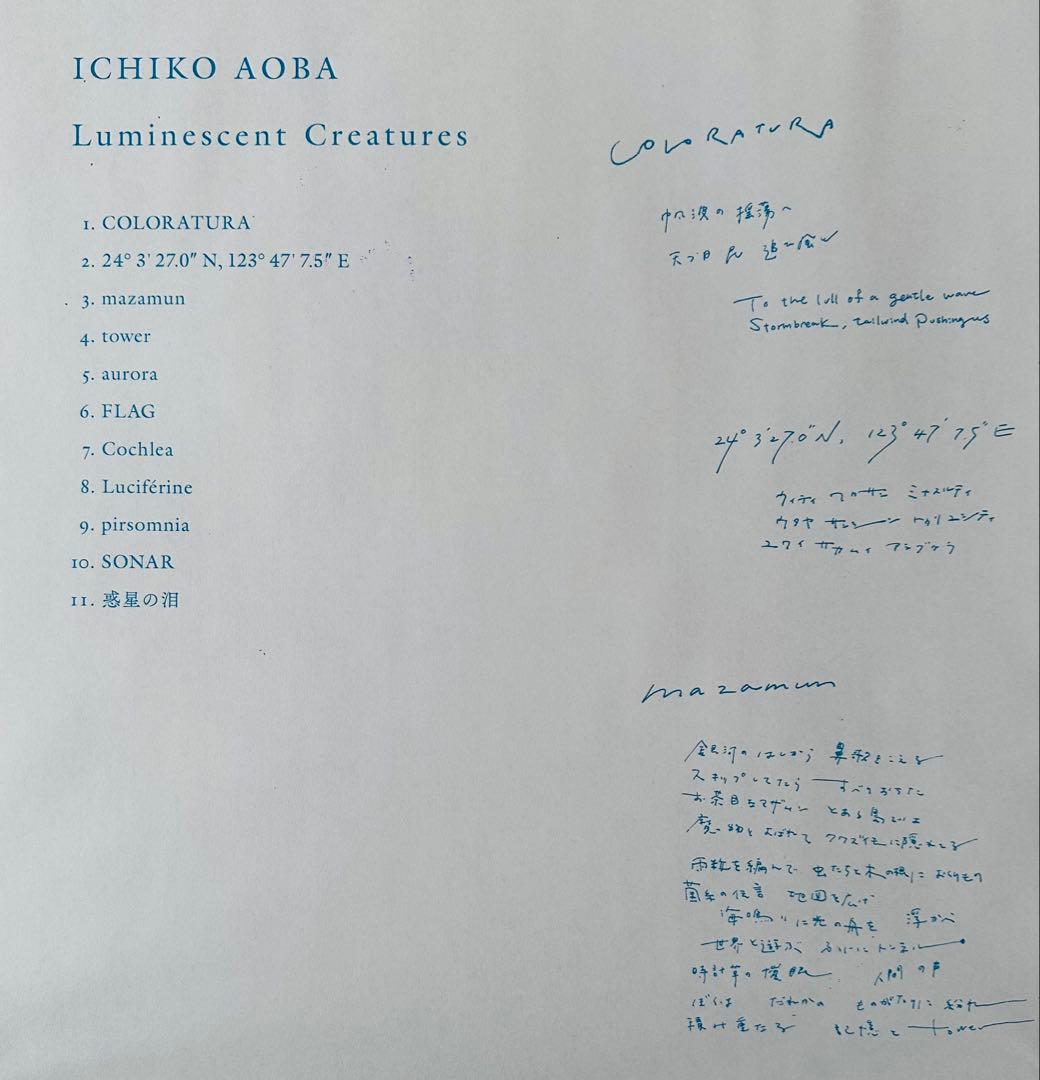 ICHIKO AOBA
Luminescent Creatures
1. COLORATURA
2. 24° 3' 27.0" N, 123° 47' 7.5" E
3. mazamun
4. tower
5. aurora
6. FLAG
7. Cochlea
8. Luciférine
9. pirsomnia
10. SONAR
11. 惑星の泪
COLORATURA
帆波の揺蕩へ
追い風
To the lull of a gentle wave
Stormbreak, tailwind Pushing us
24° 3' 27.0" N, 123° 47' 7.5" E
mazamun
銀河のはしから 鼻歌きこえる
スキップしてたら すべりおちた
お茶目なマザムン とある島では
魔物とよばれて クワズイモに隠れてる
雨粒を編んで 虫たちと木の根に おくりもの
菌糸の伝言 地図を広げ
海鳴りに光の舟を 浮かべ
世界と遊ぶ トンネル
時計草の催眠 人間の声
ぼくは だれかの ものがたりに
積み重なる 記憶と tower